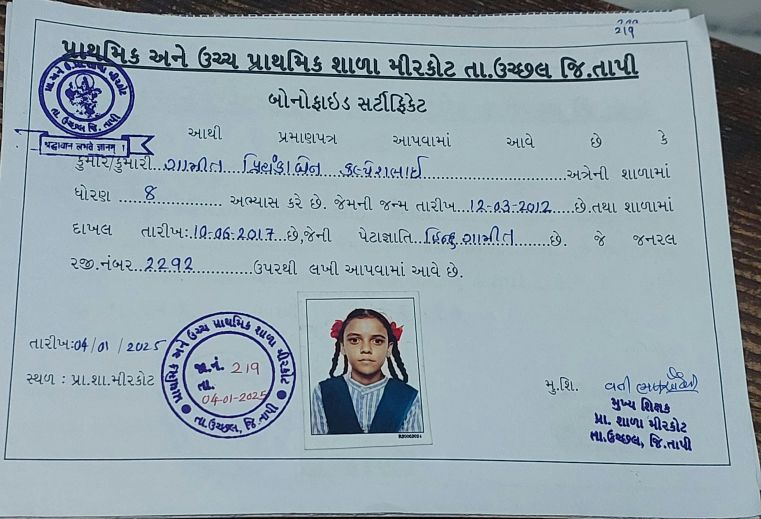 219
પ્રાથમિક અને ઉચ્ચ પ્રાથમિક શાળા મીરકોટ તા.ઉચ્છલ જિ.તાપી
બોનોફાઇડ સર્ટીફિકેટ
તા. ઉચ્છલ જિ. તાપી
श्रद्धावान लभते ज्ञानम् ।
આથી પ્રમાણપત્ર આપવામાં આવે છે કે
કુમાર/કુમારી ગામીત પ્રિયંકાબેન કલ્પેશભાઈ ......અત્રેની શાળામાં
ધોરણ ...8... અભ્યાસ કરે છે. જેમની જન્મ તારીખ...12-03-2012...છે.તથા શાળામાં
દાખલ તારીખ:.10-06-2017..છે,જેની પેટાજ્ઞાતિ..હિન્દુ ગામીત...છે. જે જનરલ
રજી.નંબર...2292......ઉપરથી લખી આપવામાં આવે છે.
તારીખ:04/01/2025
સ્થળ : પ્રા.શા.મીરકોટ
પ્રાથમિક અને ઉચ્ચ પ્રાથમિક શાળા મીરકોટ
જા.નં. 219
તા.
04-01-2025
તા.ઉચ્છલ, જિ.તાપી
મુ.શિ.
મુખ્ય શિક્ષક
પ્રા. શાળા મીરકોટ
તા.ઉચ્છલ, જિ.તાપી